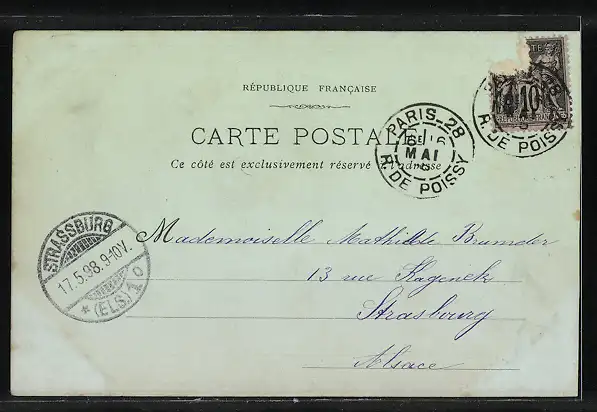 RÉPUBLIQUE FRANÇAISE
CARTE POSTALE
Ce côté est exclusivement réservé à l'adresse
PARIS_28
16
MAI
R. DE POISSY
10
R. DE POISSY
STRASSBURG
17.5.98.9-10V.
* (ELS.) 1 o
Mademoiselle Mathilde
13 rue Kageneck
Strasbourg
Alsace